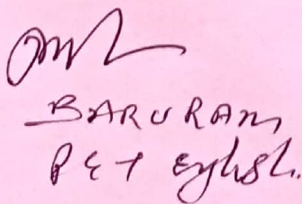 BARURAM
PGT English.